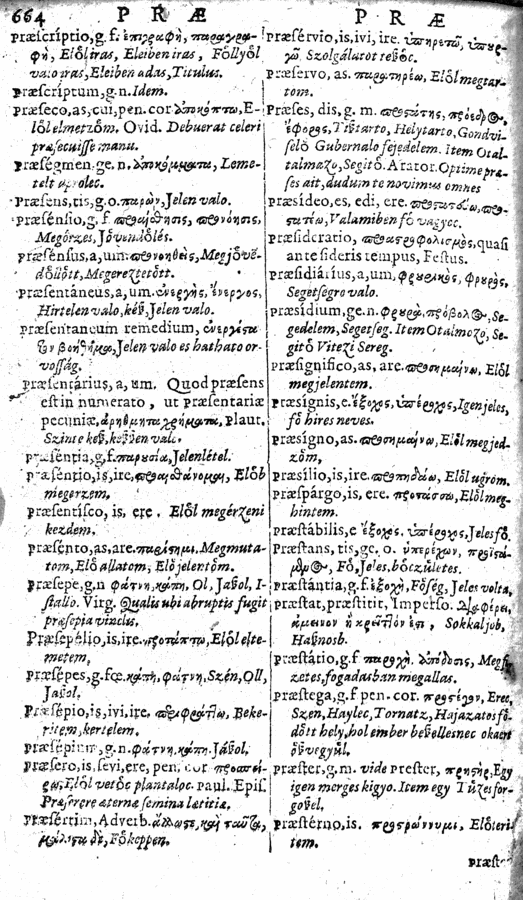 664 P R Æ
Præscriptio, g. f. ἐπιγραφὴ, παραγρα-
φή, Elöliras, Eleiben iras, Föllyöl
valo iras, Eleiben adas, Titulus.
Præscriptum, g. n. Idem.
Præseco, as, cui, pen. cor ἀποκόπτω, E-
löl elmetzöm. Ovid. Debuerat celeri
præsecuisse manu.
Præségmen. ge. n. ἀποκόμματα, Leme-
telt aprolec.
Præsens, tis, g. o. παρὼν, Jelen valo.
Præsénsio, g. f. προαίσθησις, προνόησις,
Megérzes, Jövendölés.
Præsénsus, a, um. προνοηθεὶς, Megjövē-
dölt, Megereztetött.
Præsentáneus, a, um. ἐνεργὴς, ἔνεργος,
Hirtelen valo, kéß, Jelen valo.
Præsentaneum remedium,
Jelen valo es hathato or-
vosság.
Præsentárius, a, um. Quod præsens
est in numerato, ut præsentariæ
pecuniæ, Plaut.
Szinte
Præsentia, g. f. παρυσία, Jelenlétel.
Præséntio, is, ire, Elöb
megerzem.
Præsentísco, is, ere. Elöl megérzeni
kezdem.
Præsento, as, are. παρίστημι. Megmuta-
tom, Elö allatom, Elö jelentöm.
Præsepe, g. n φάτνη, κάπη, Ol, Jaßol, I-
stallo. Virg. Qualis ubi abruptis fugit
præsepia vinclis.
Præsepélio, is, ire, προτάπτω, Elöl elte-
metem.
Præsépes, g. fœ. κάπη, φάτνη, Szén, Oll,
Jaßol.
Præsépio, is, ivi, ire. περιφράττω, Beke-
ritem, kertelem.
Præsépium, g. n. φάτνη, κάπη. Jáßol.
Præsero, is, sevi, ere, pen. cor.
Elöl vetöc plantaloc. Paul. Epis.
Præserere æternæ semina lætitiæ.
Præsértim, Adverb. ἄλλωστε, καὶ ταῦτα,
μάλιστα δὲ, Föképpen.
P R Æ
Præsérvio, is, ivi, ire. ὑπηρετῶ, ὑπουρ-
γῶ. Szolgálatot teßöc.
Præservo, as. παρατηρέω, Elöl megtar-
tom.
Præses, dis, g. m. προστάτης, πρόεδρος,
ἔφορος, Tißtarto, Helytarto, Gondvi-
selö Gubernalo fejedelem. Item Otal-
talmazo, Segitö. Arator. Optime præ-
ses ait, dudum te novimus omnes
Præsídeo, es, edi, ere. προστατέω, προ-
Valamiben fö vagyoc.
Præsideratio, quasi
ante sideris tempus, Festus.
Præsidiárius, a, um, φρουρικὸς, φρουρὸς,
Segetségro valo.
Præsídium, ge. n. φρουρὰ, πρόβολος, Se-
gedelem, Segetseg. Item Otalmozo, Se-
gitö Vitezi Sereg.
Præsignífico, as, are. προσημαίνω, Elöl
megjelentem.
Præsignis, e. ἔξοχος, ὑπέροχος, Igen jeles,
fö hires neves.
Præsígno, as. προσημαίνω, Elöl megjed-
zöm.
Præsílio, is, ire. προπηδάω, Elöl ugrom.
Præspárgo, is, ere. προπάσσω, Elöl meg-
hintem.
Præstábilis, e ἔξοχος. ὑπέροχος, Jeles fö.
Præstans, tis, ge. o. ὑπερέχων, προϊστά-
μενος, Fö, Jeles. böczülletes.
Præstántia, g. f. ἐξοχὴ, Föség, Jeles volta,
Præstat, præstitit, Imperso. Διαφέρει,
ἄμεινον ἢ κρεῖττόν ἐστι, Sokkal job,
Haßnosb.
Præstátio, g. f. παροχὴ. ἀπόδοσις, Megfi-
zetes, fogadasban megallas.
Præstega, g. f pen. cor. προστέγον, Erez,
Szen, Haylec, Tornatz, Hajazatos fö-
dött hely, hol ember beßellesnec okaért
öszvegyül.
Præster, g. m. vide Prester, πρηστὴρ, Egy
igen merges kigyo. Item egy Tüzes for-
goßel.
Præstérno, is. προστρώννυμι, Elöteri-
tem.